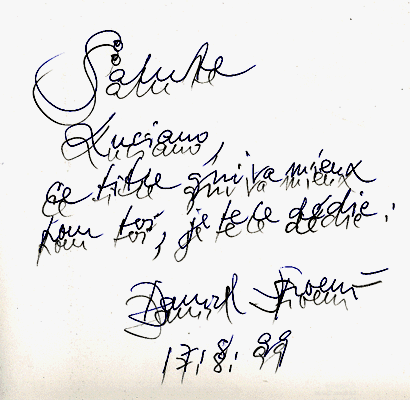 Salute
Luciano,
ce titre qui va mieux
pour toi, je te le dédie.
Daniel Spoerri
17.8.99